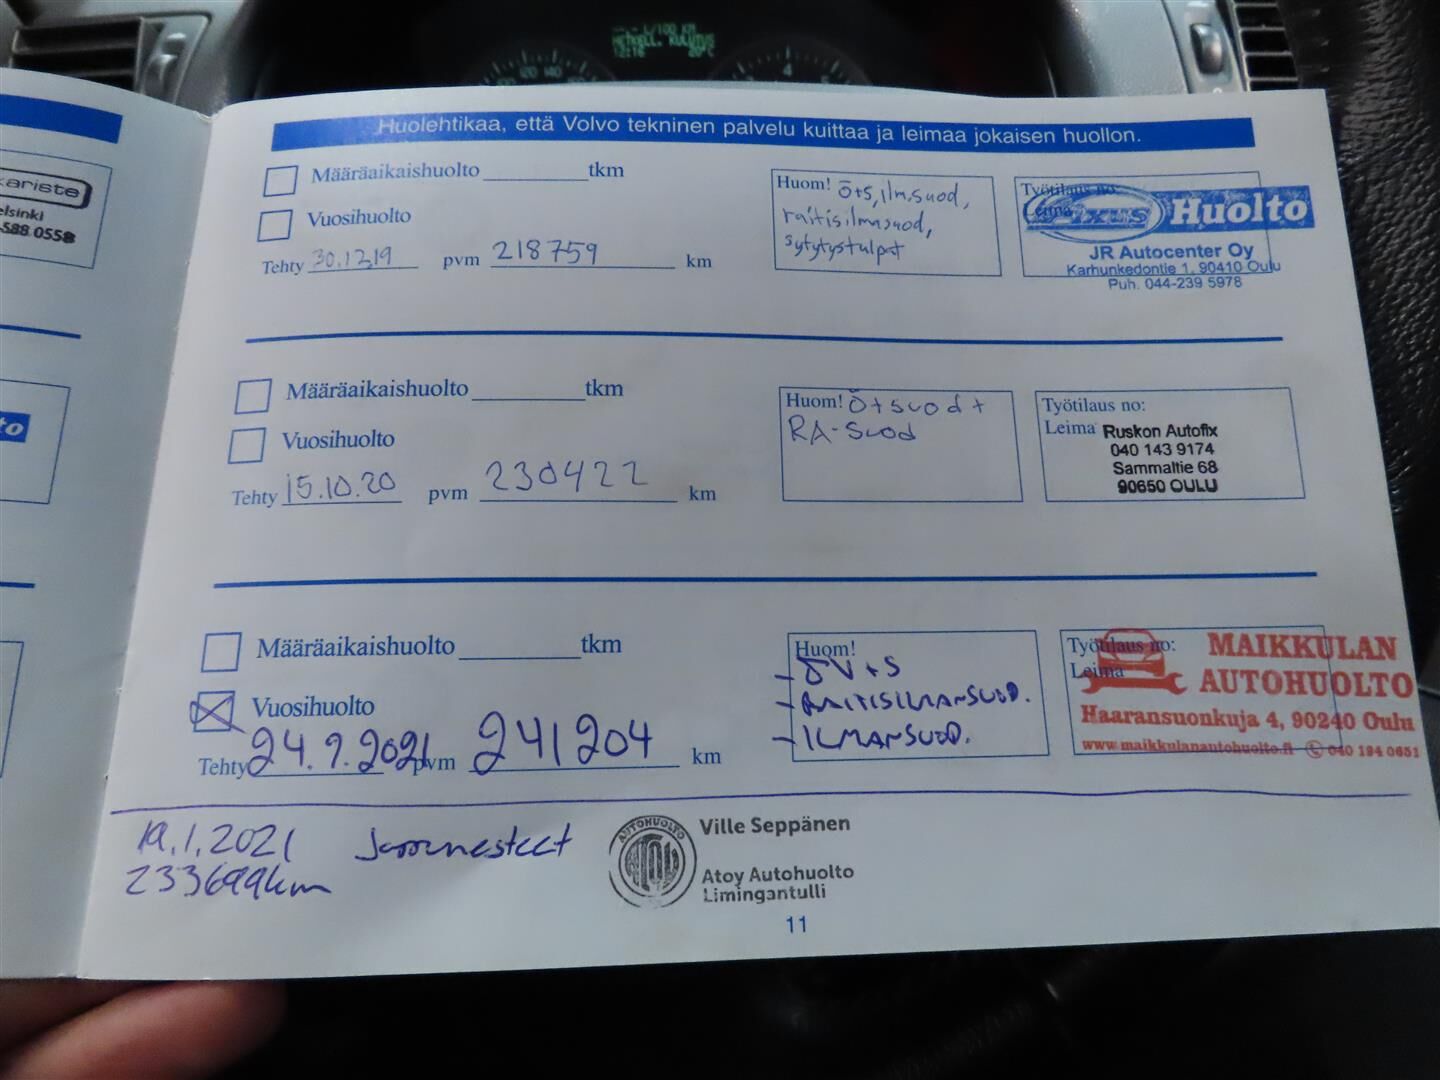 HETKELL. KULUTUS
Huolehtikaa, että Volvo tekninen palvelu kuittaa ja leimaa jokaisen huollon.
Määräaikaishuolto tkm
Vuosihuolto
Tehty 30.12.19 pvm 218759 km
Huom! Ö+S, ilm.suod,
raitisilmasuod,
sytytystulpat
Työtilaus no:
Leima
Fixus Huolto
JR Autocenter Oy
Karhunkedontie 1, 90410 Oulu
Puh. 044-239 5978
Määräaikaishuolto tkm
Vuosihuolto
Tehty 15.10.20 pvm 230422 km
Huom! Ö+suod+
RA-suod
Työtilaus no:
Leima Ruskon Autofix
040 143 9174
Sammaltie 68
90650 OULU
Määräaikaishuolto tkm
Vuosihuolto
Tehty 24.9.2021 pvm 241204 km
Huom!
- ÖV+S
- RAITISILMANSUOD.
- ILMANSUOD.
Työtilaus no:
Leima
MAIKKULAN
AUTOHUOLTO
Haaransuonkuja 4, 90240 Oulu
www.maikkulanautohuolto.fi 040 194 0651
19.1.2021 Jarrunesteet
233699km
AUTOHUOLTO
Ville Seppänen
Atoy Autohuolto
Limingantulli
11
kariste
elsinki
588 0558
to